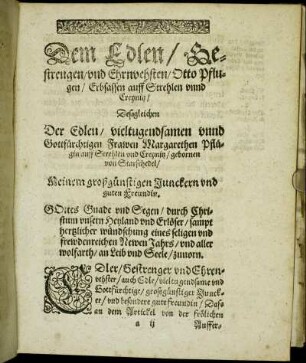 Dem Edlen/ Ge-
strengen/ vnd Ehrnvehsten/ Otto Pflu-
gen/ Erbsassen auff Strehlen vnnd
Creynig/
Desgleichen
Der Edlen/ vieltugendsamen vnnd
Gottfürchtigen Frawen Margarethen Pflü-
gin auff Strehlen vnd Creynitz/ gebornen
von
Meinem großgünstigen Junckern vnd
guten Freundin.
GOttes Gnade vnd Segen/ durch Chri-
stum vnsern Heyland vnd Erlöser/ sampt
hertzlicher wündschung eines seligen vnd
frewdenreichen Newen Jahrs/ vnd aller
wolfarth/ an Leib vnd Seele/ zuvorn.
EDler/ Gestrenger vnd Ehren-
vehster/ auch Edle/ vieltugendsame vnd
Gottfürchtige/ großgünstiger Juncke-
r/ vnd besondere gute freundin/ Daß
an dem Artickel von der frölichen
a ij
Auffer/